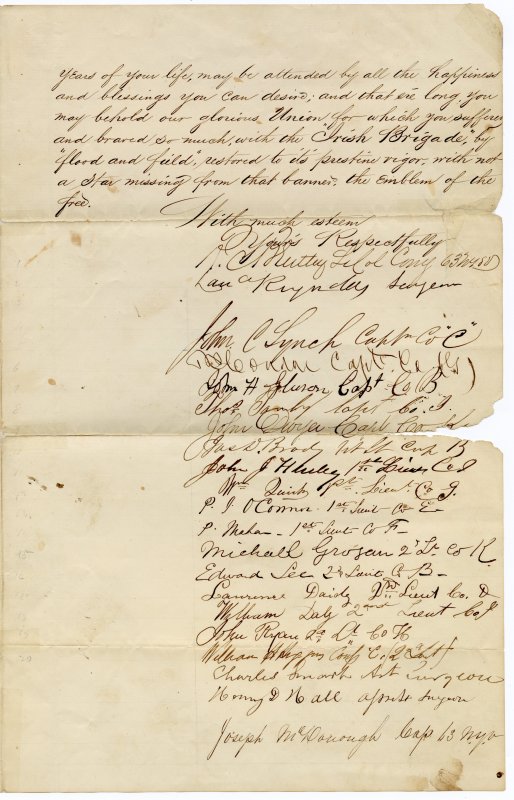 years of your life, may be attended by all the happiness
and blessings you can desire; and that ere long you
may behold our glorious Union for which you suffered
and braved so much, with the "Irish Brigade," by
"flood and field, restored to its prestine vigor, with not
a star missing from that banner, the Emblem of the
free.
With much esteem
Yours Respectfully
R. C. Bentley Lt Col Comg 63 NYSV
Reynolds Surgeon
John C Lynch Captn Co "C"
Condon Capt. Co
John H Gleeson Capt Co B
Thos. Touhy Capt Co. I
John Dwyer Capt Co
Jas D. Brady
John J Hurley 1st Lieut Co I
Wm Quirk 1st Lieut. Co
P. J. O'Connor 1st Lieut Co E
P. Maher 1st Lieut Co F
Michael Grogan 2d Lt Co K.
Edward Lee 2d Lieut Co B
Lawrence Daidy 2nd Lieut Co. D
William Daly 2nd Lieut Co
John Ryan 2d Lt Co H
William Co
Charles Smart Ast Surgeon
Henry D Hall Surgeon
Joseph McDonough Cap 63 N.Y.V